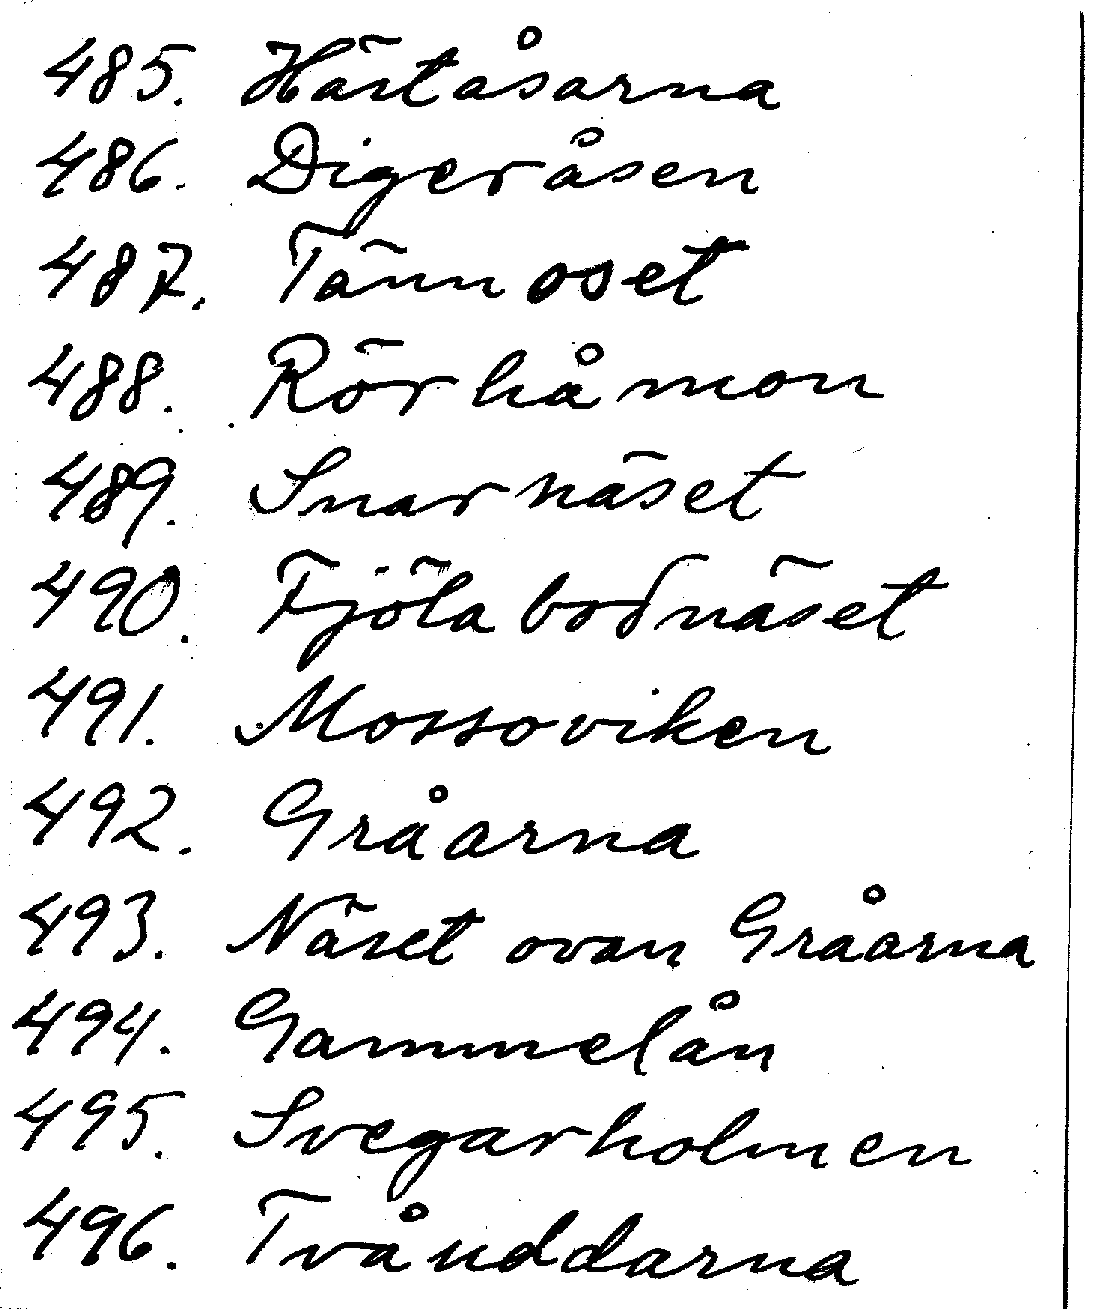 485. Häståsarna
486. Digeråsen
487. Tännoset
488. Rörhåmon
489. Snarnäset
490. Fjölabodnäset
491. Mossoviken
492. Gråarna
493. Näset ovan Gråarna
494. Gammelån
495. Svegarholmen
496. Tvåuddarna